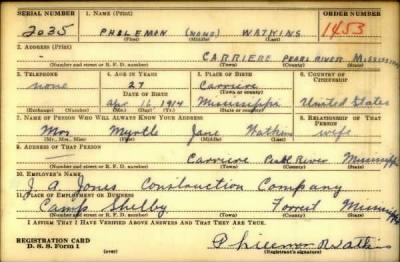 SERIAL NUMBER 1. NAME (Print) ORDER NUMBER
2035 PHILEMON (NONE) WATKINS 1453
(First) (Middle) (Last)
2. ADDRESS (Print)
CARRIERE PEARL RIVER MISSISSIPPI
(Number and street or R. F. D. number) (Town) (County) (State)
3. TELEPHONE 4. AGE IN YEARS 5. PLACE OF BIRTH 6. COUNTRY OF CITIZENSHIP
none 27 Carriere
DATE OF BIRTH (Town or county)
Apr 16, 1914 Mississippi United States
(Exchange) (Number) (Mo.) (Day) (Yr.) (State or country)
7. NAME OF PERSON WHO WILL ALWAYS KNOW YOUR ADDRESS 8. RELATIONSHIP OF THAT PERSON
Mrs Myrtle Jane Watkins wife
(Mr., Mrs., Miss) (First) (Middle) (Last)
9. ADDRESS OF THAT PERSON
Carriere Pearl River Mississippi
(Number and street or R. F. D. number) (Town) (County) (State)
10. EMPLOYER'S NAME
J. A. Jones Construction Company
11. PLACE OF EMPLOYMENT OR BUSINESS
Camp Shelby Forrest Mississippi
(Number and street or R. F. D. number) (Town) (County) (State)
I AFFIRM THAT I HAVE VERIFIED ABOVE ANSWERS AND THAT THEY ARE TRUE.
REGISTRATION CARD
D. S. S. Form 1 (over) Philemon Watkins
(Registrant's signature)